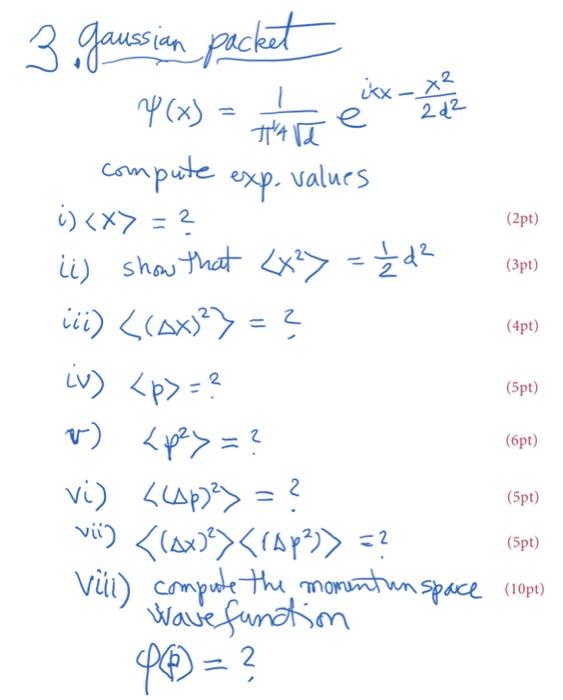 3. gaussian packet
ψ(x) = 1/(π^1/4 √d) e^(ikx - x²/2d²)
compute exp. values
i) <x> = ? (2pt)
ii) show that <x²> = 1/2 d² (3pt)
iii) <(Δx)²> = ? (4pt)
iv) <p> = ? (5pt)
v) <p²> = ? (6pt)
vi) <(Δp)²> = ? (5pt)
vii) <(Δx)²><(Δp²)> = ? (5pt)
viii) compute the momentum space (10pt)
wavefunction
φ(p) = ?